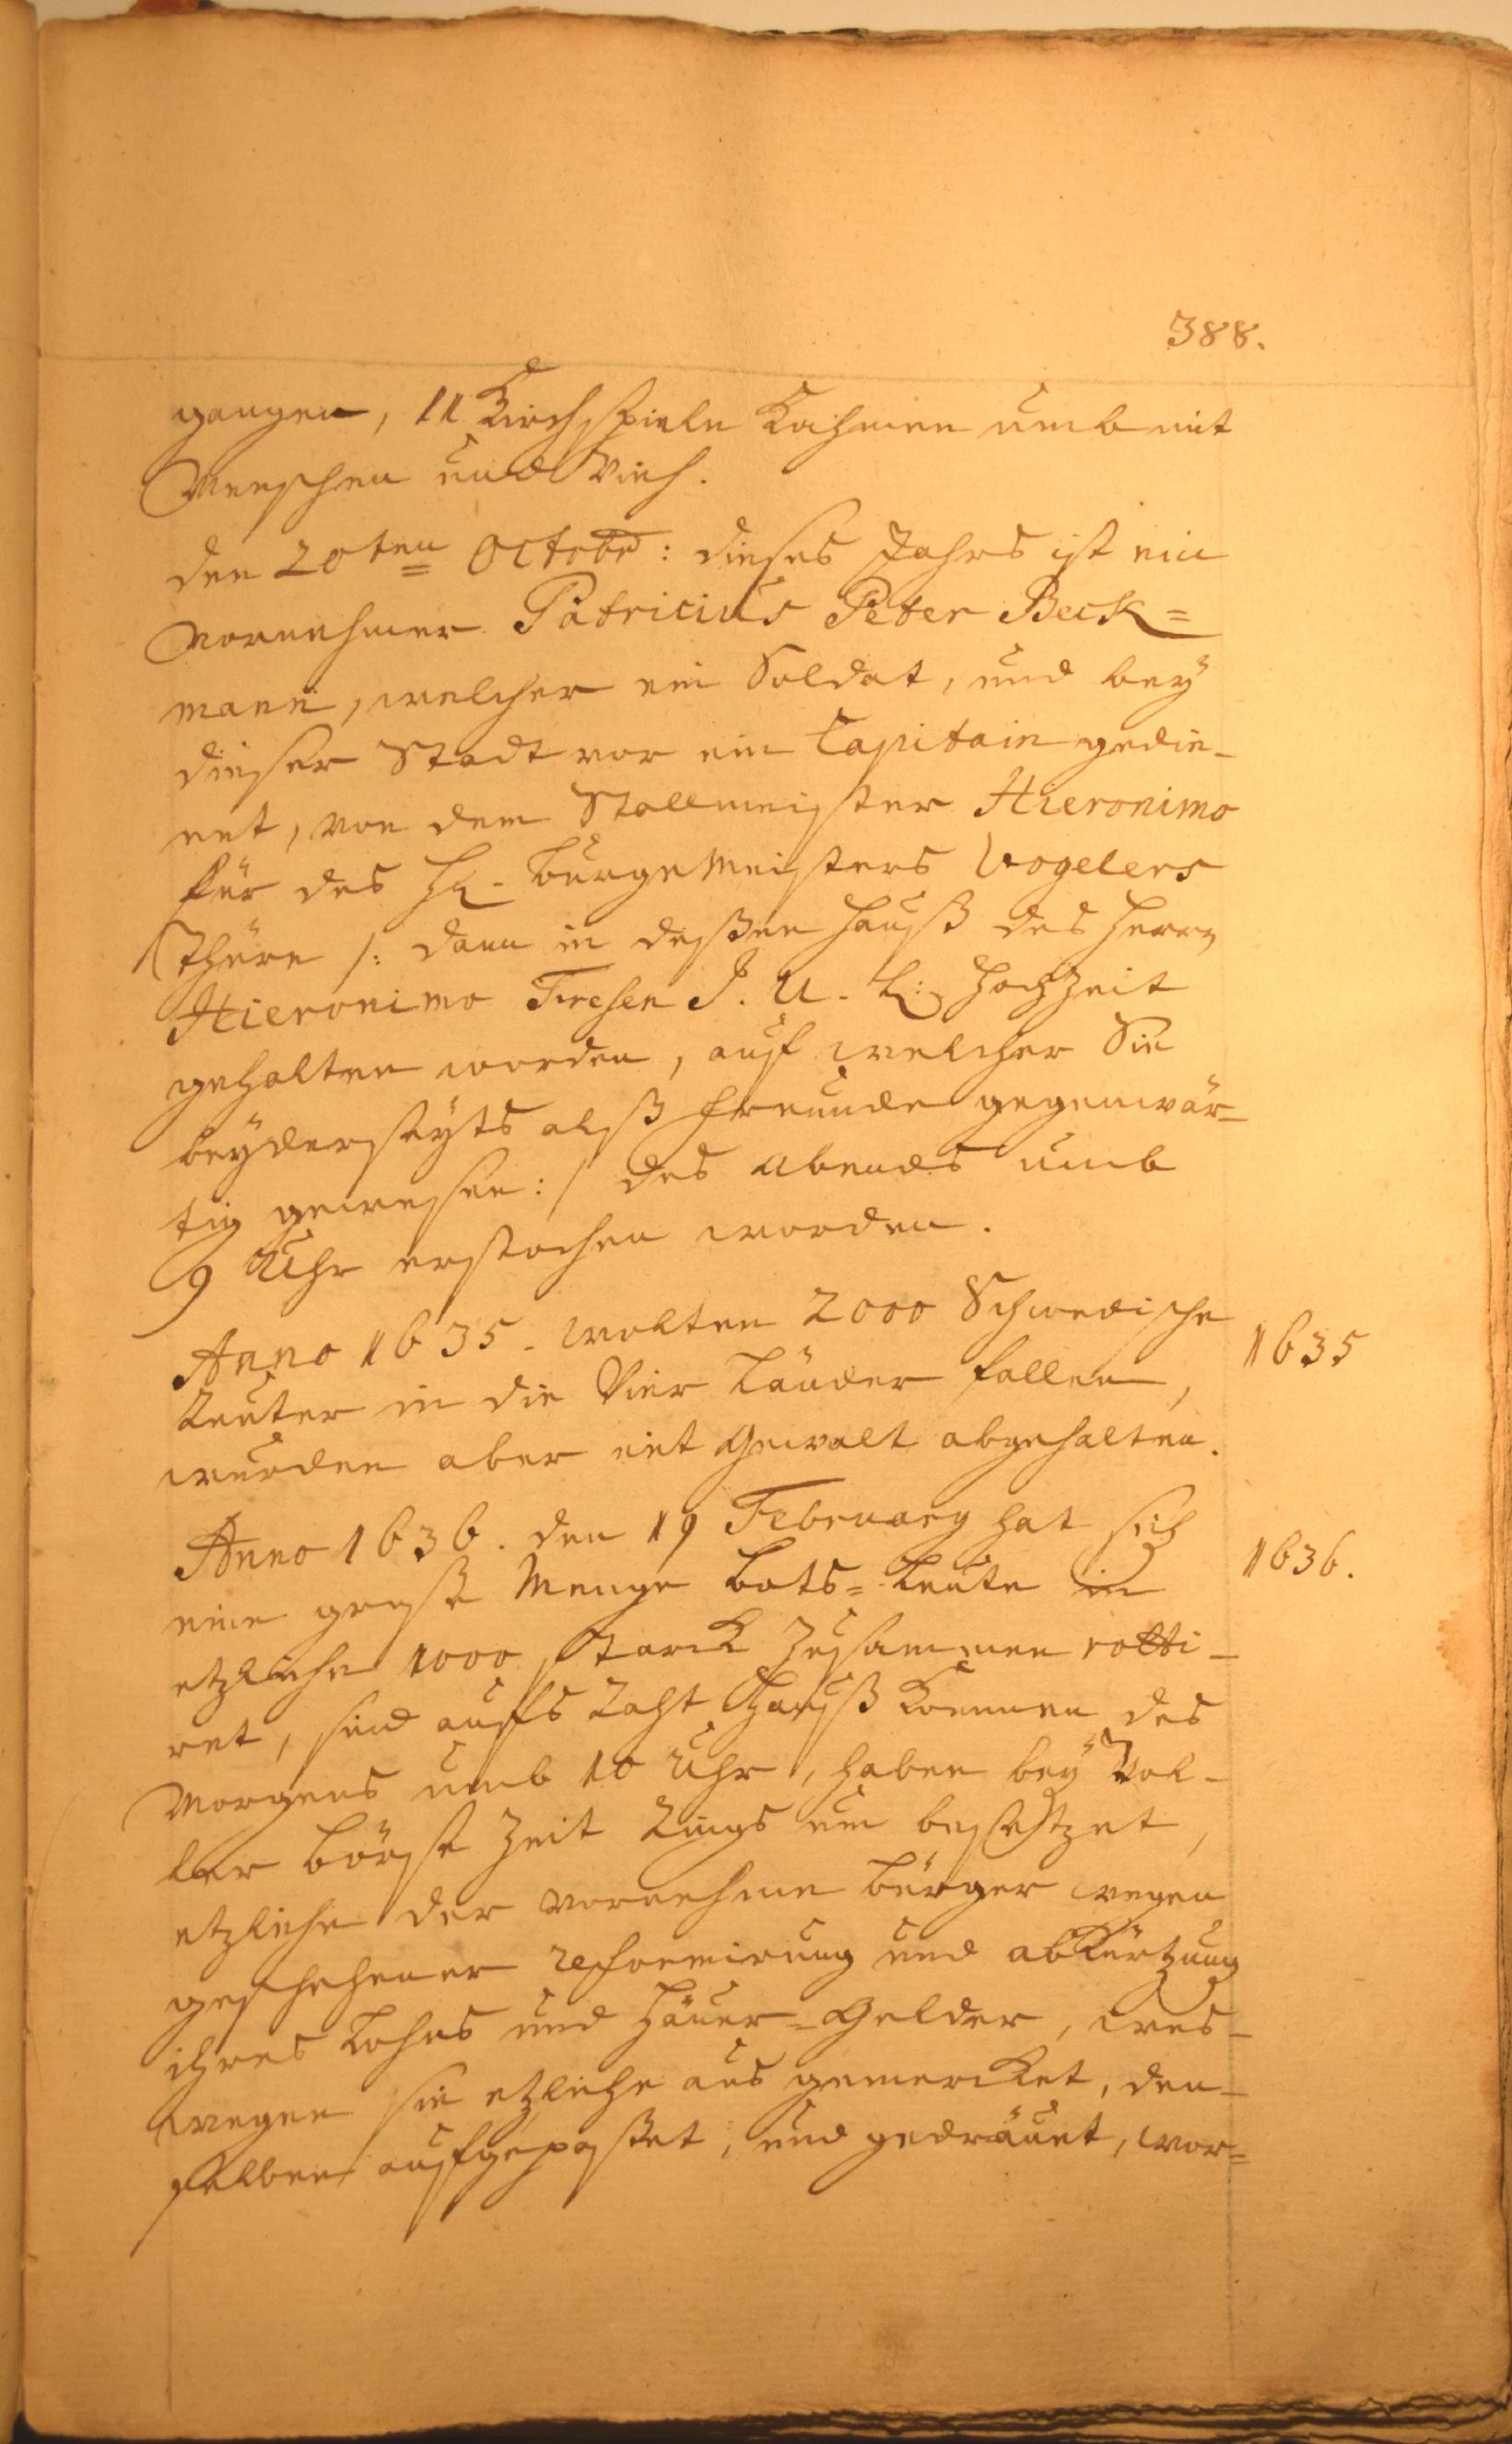 388.
gangen, 11 Kirchspiele kahmen umb mit
Menschen und Vieh.
den 20ten Octobr: dieses Jahrs ist ein
vornehmer Patricius Peter Beck=
mann, welcher ein Soldat, und beÿ
dieser Stadt vor ein Capitain gedie-
net, von dem Stallmeister Hieronimo
für des H. Bürgemeisters Vogelers
Thüre /: dann in deßen Hauß des Herrn
Hieronimo Fresen J. U. L: Hochzeit
gehalten worden, auf welcher Sie
beÿderseÿts alß Freunde gegenwär-
tig gewesen :/ des Abends umb
9 Uhr erstochen worden.
Anno 1635. wolten 2000 Schwedische
Reuter in die Vier Länder fallen,
wurden aber mit Gewalt abgehalten.
1635
Anno 1636. den 19 February hat sich
eine große Menge Bots=Leute in
etzliche 1000 starck zusammen rotti-
ret, sind aufs Raht Hauß kommen des
Morgens umb 10 Uhr, haben beÿ Vol-
ler Börse Zeit Rings um besetzet,
etzliche der vornehme Bürger wegen
geschehener reformirung und abkürtzung
ihres Lohns und Häuer-Gelder, wes-
wegen sie etzliche aus gemercket, den-
selben aufgepaßet, und gedräuet, wor=
1636.